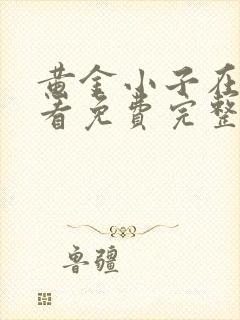 黄金小子在
看免费完整
鲁疆